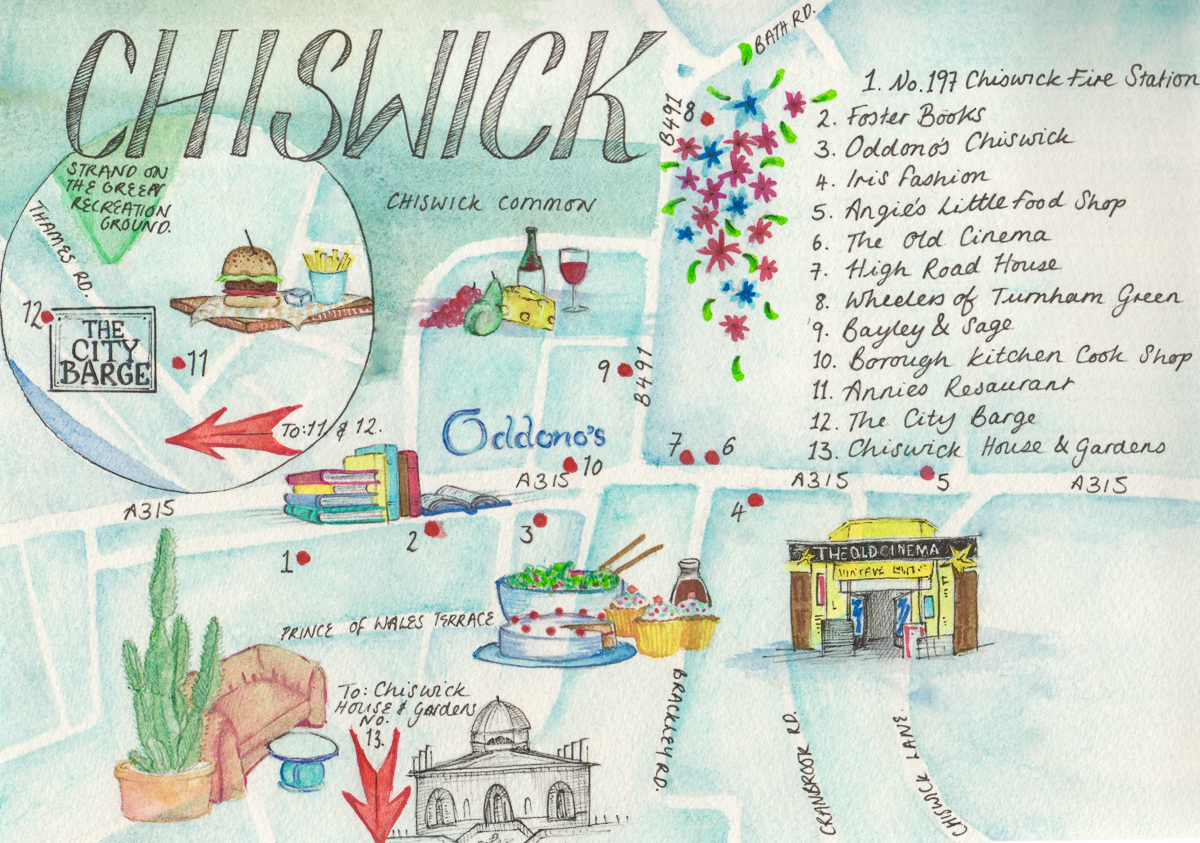 CHISWICK
BATH RD.
B491
8
CHISWICK COMMON
STRAND ON
THE GREEN
RECREATION
GROUND.
THAMES RD.
12
THE
CITY
BARGE
11
To: 11 & 12.
9
B491
Oddono's
10
A315
7
6
A315
5
A315
A315
1. No.197 Chiswick Fire Station
2. Foster Books
3. Oddono's Chiswick
4. Iris Fashion
5. Angie's Little Food Shop
6. The Old Cinema
7. High Road House
8. Wheelers of Turnham Green
9. Bayley & Sage
10. Borough Kitchen Cook Shop
11. Annies Resaurant
12. The City Barge
13. Chiswick House & Gardens
1
2
3
4
THE OLD CINEMA
PRINCE OF WALES TERRACE
To: Chiswick
House & Gardens
No.
13.
BRACKLEY RD.
CRANBROOK RD.
CHISWICK LANE.